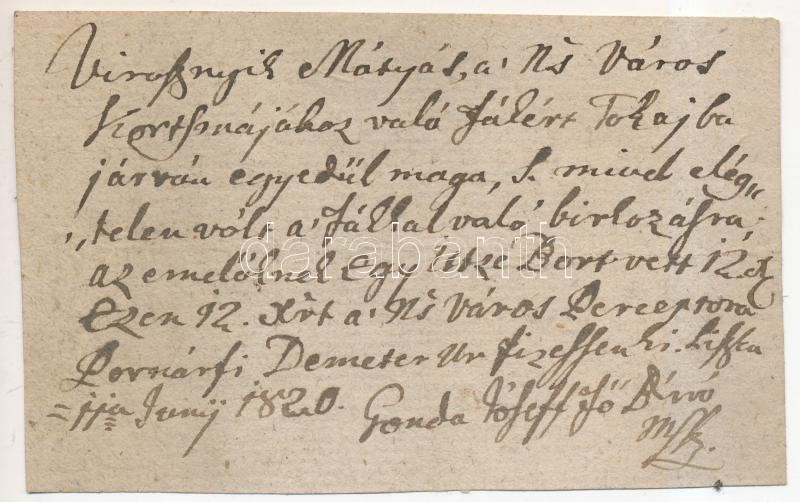 Viroſznyik Mátyás, a' Ns Város
Kortsmájához való fákért Tokajba
járván egyedül maga, s. mivel elég„
„telen vólt a' fákkal való birkozásra;
az emelőknek Egy itzé Bort vett 12 x
Ezen 12. Xrt a' Ns Város Perceptora
Demeter Ur fizessen ki. Liszka
=11a Junij 1820. Gonda Jóseff Fő Biró
mk.
darabanth